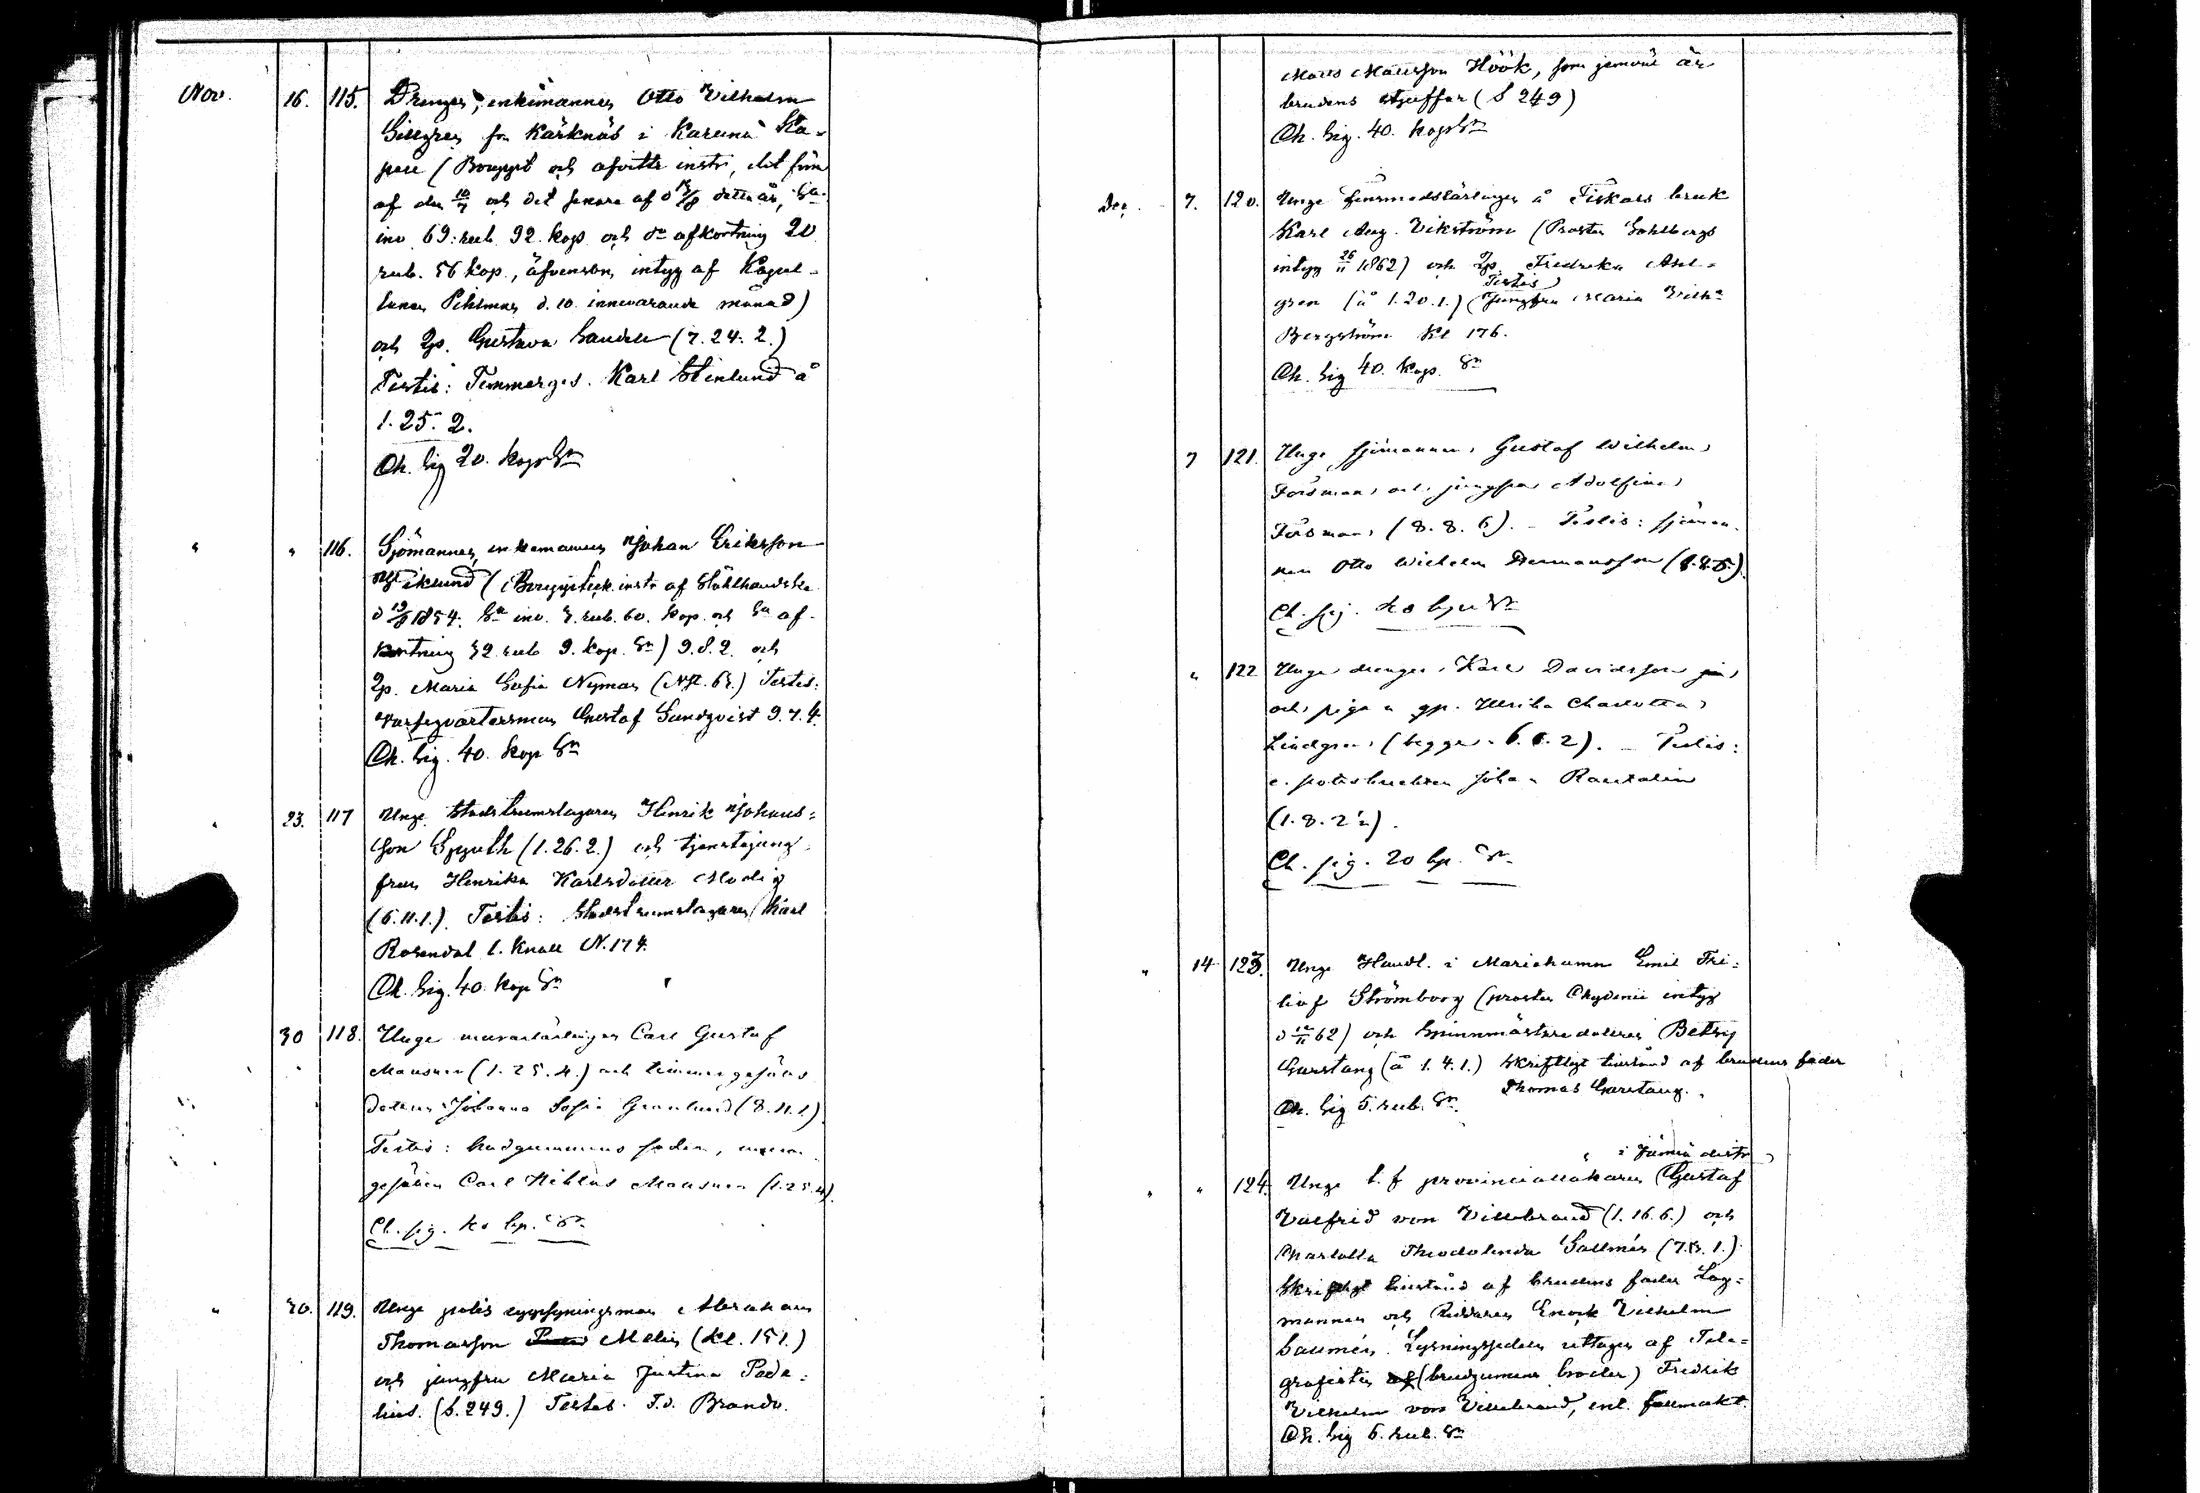 Nov. 16. 115. Drengen, enkimannen Otto Vilhelm
Gillgren fr. Karknäs i Karuna Ka-
pell (Bouppt och afvittr. instr, det förra
af den 10/7 och det senare af d 13/8 detta år, Sa
inv 69: rub. 92. kop. och da afkortning 20
rub. 56 kop., äfvensom intyg af Kapel-
lanen Pihlman d. 10. innevarande månad)
och Qp. Gustava Sandell (7. 24. 2.)
Testis: Timmerges. Karl Stenlund å
1. 25. 2.
Ch. Sig 20. kop. Sr
" " 116. Sjömannen, enkemannen Johan Eriksson
Viklund (Bouppteckn. instr af Stålhandske
d 13/9 1854. Sa inv. 3. rub. 60. kop. och Sa af-
kortning 32 rub 9. kop. Sr) 9. 8. 2. och
Qp. Maria Sofia Nyman (Nst. 63.) Testis:
Varfsqvartersman Gustaf Sundqvist 9. 7. 4.
Ch. Sig. 40. kop Sr
" 23. 117 Unge Stadstrumslagaren Henrik Johans=
son Spjuth (1. 26. 2.) och tjenstejung-
frun Henrika Karlsdotter Modig
(6. 11. 1.) Testis: Stadstrumslagaren Karl
Rosendal l. Knall N. 174.
Ch. Sig. 40. kop Sr
30 118. Unge murarlärlingen Carl Gustaf
Mansner (1. 25. 4.) och timmergesälls
dottern Johanna Sofia Granlund (8. 11. 1)
Testis: brudgummens fader, murar
gesällen Carl Niklas Mansner (1. 25. 4).
Ch. sig. 40 kp. Sr
" 30. 119. Unge polis uppsyningsman Abraham
Thomasson Melin (Kl. 151.)
och jungfru Maria Justina Pade-
lius. (S. 249.) Testes. T.d. Brandv.
Matts Mattsson Höök, som jemväl är
brudens styffar (S 249)
Ch. Sig. 40. kop Sr
Dec. 7. 120. Unge finsmedslärlingen å Fiskars bruk
Karl Aug. Vikström (Prosten Sohlbergs
intyg 26/11 1862) och Qp. Fredrika Ahl-
Testis
gren (å 1. 20. 1.) (Jungfru Maria Vilh:a
Bergström Kl 176.
Ch. Sig 40. kop. Sr
7 121. Unge sjömannen Gustaf Wilhelm
Forsman och jungfru Adolfina
Forsman (8. 8. 6). - Testis: sjöman-
nen Otto Wilhelm Hermansson
Ch. sig. 40 kop Sr
" 122 Unge drengen Karl Davidsson
och piga n qp. Ulrika Charlotta
Lindgren (begge. 6. 6. 2). - Testis:
e. poliskusken Johan Rautalin
(1. 8. 2½).
Ch. sig. 20 kp. Sr
" 14 123. Unge Handl. i Mariehamn Emil Fri-
tiof Strömborg (prosten Chydenii intyg
d 12/11 62) och Spinnmästare dottren Betsy
Garstang (å 1. 4. 1.) Skriftligt bistånd af brudens fader
Thomas Garstang.
Ch. Sig 5. rub. Sr.
i Jämsä distr
" " 124. Unge t. f provincialläkaren Gustaf
Valfrid von Villebrand (1. 16. 6.) och
Charlotta Theodolinda Sallmén (7. 13. 1.)
Skriftligt bistånd af brudens fader Lag-
mannen och Riddaren Enock Vilhelm
Sallmén. Lysningssedeln uttagen af Tele-
grafisten (brudgummens broder) Fredrik
Vilhelm von Villebrand, enl. fullmakt
Ch. Sig 6. rub. Sr